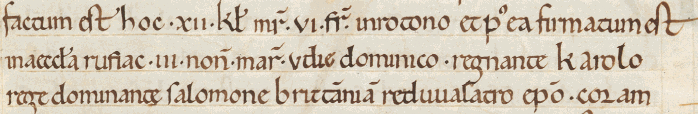 factum est hoc · xii · kł mr̄ · vi · fr̄ · inrotono et p⁹ ea firmatum est
inaeccła rufiac · iii · non̄ · mar̄ · v die dominico · regnante karolo
rege dominante salomone brittāniā redwasatro ep̄o · coram